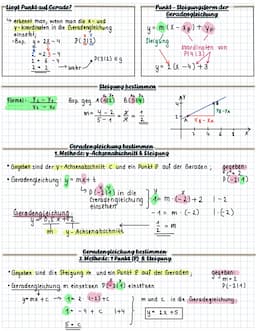 Liegt Punkt auf Gerade?
→ erkennt man, wenn man die x- und
y-Koordinaten in die Geradengleichung
einsetzt
• Bsp. y = 2x - 4 P(3|2)
→ wahr
Punkt - Steigungsform der
Geradengleichung
y = m(x - xp) + yp
Steigung
Koordinaten von
y = 2(x - 4) + 3
Steigung bestimmen
Formel:
Bsp. geg.
Geradengleichung bestimmen
1. Methode: y-Achsenabschnitt & Steigung
• Gegeben sind der y-Achsenabschnitt c und ein Punkt P auf der Geraden.
gegeben:
• Geradengleichung: y = mx + t
P(-2|1) in die
Geradengleichung
einsetzen
1 = m · (-2) + 2 | - 2
-1 = m · (-2) | : (-2)
Geradengleichung
m y - Achsenabschnitt
Geradengleichung bestimmen
2. Methode: Punkt (P) & Steigung
• Gegeben sind die Steigung m und ein Punkt P auf der Geraden.
gegeben:
• Geradengleichung m einsetzen P(-2|1) einsetzen
P(-2|1)
y = mx + c
m und c in die Geradengleichung
y = 2x + 5
5 = c